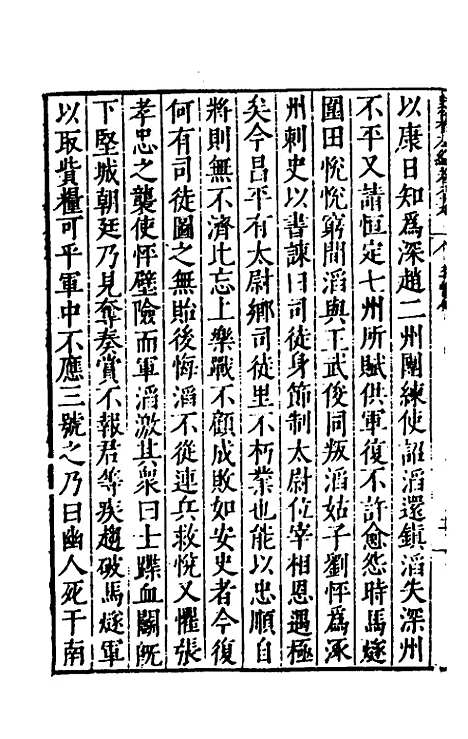 以康日知爲深趙二州團練使詔滔還鎮滔失深州
不平又請恒定七州所賦供軍復不許愈怨時馬燧
圍田悅悅窮間滔與王武俊同叛滔姑子劉怦爲涿
州刺史以書諫曰司徒身節制太尉位宰相恩遇極
矣今昌平有太尉鄉司徒里不朽業也能以忠順自
將則無不濟比忘上樂戰不顧成敗如安史者今復
何有司徒圖之無貽後悔滔不從連兵救悅又懼張
孝忠之襲使怦壁險而軍滔激其衆曰士蹀血鬭旣
下堅城朝廷乃見奪奏賞不報君等疾趨破馬燧軍
以取貲糧可乎軍中不應三號之乃曰幽人死于南